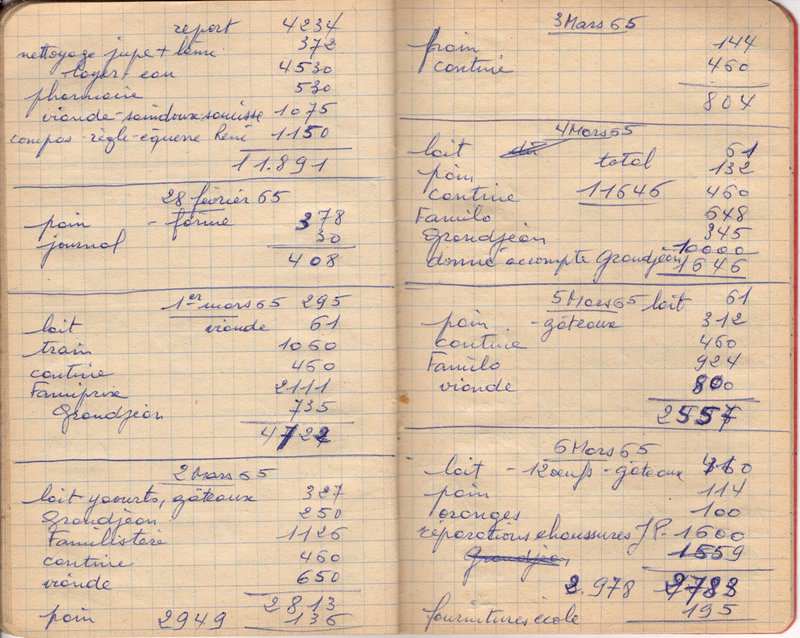 report 4234
nettoyage jupe + laine 372
loyer - eau 4530
pharmacie 530
viande - saindoux saucisse 1075
compas - règle - équerre René 1150
11.891
28 février 65
pain - farine 378
journal 30
408
1er mars 65 295
lait viande 61
train 1060
cantine 460
Familprix 2111
Grandjean 735
4722
2 Mars 65
lait yaourts, gâteaux 327
Grandjean 250
Familistère 1126
cantine 460
viande 650
2813
pain 2949 136
3 Mars 65
pain 144
cantine 460
804
4 Mars 65
lait 61
pain total 132
cantine 11646 460
Familo 648
Grandjean 345
donné accompte Grandjean 10000
1646
5 Mars 65 lait 61
pain - gâteaux 312
cantine 460
Familo 924
viande 800
2557
6 Mars 65
lait - 12 oeufs - gâteaux
pain 114
oranges 100
réparations chaussures JP. 1600
Grandjean 1559
2.978 2783
fournitures école 195